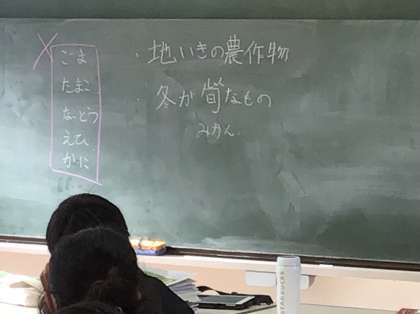 ×
ごま
たまご
なっとう
えび
かに
・地いきの農作物
・冬が旬なもの
みかん